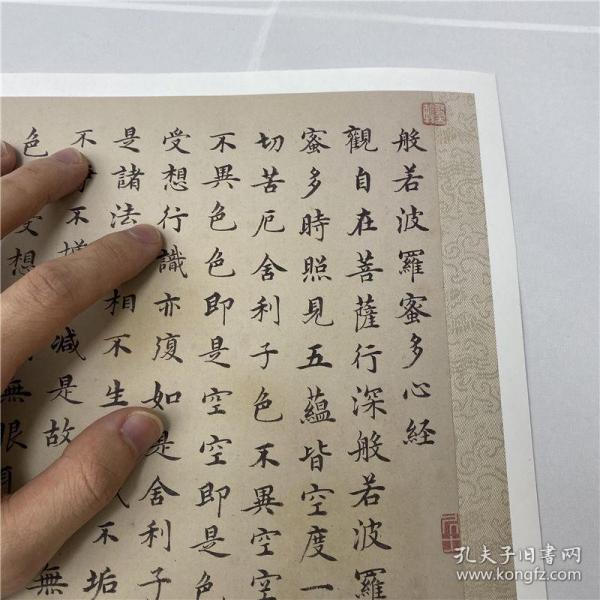 般若波羅蜜多心経
觀自在菩薩行深般若波羅
蜜多時照見五蘊皆空度一
切苦厄舍利子色不異空空
不異色色即是空空即是色
受想行識亦復如是舍利子
是諸法相不生不垢
不不增減是故
色受想無眼無
孔夫子旧書网
www.kongfz.com